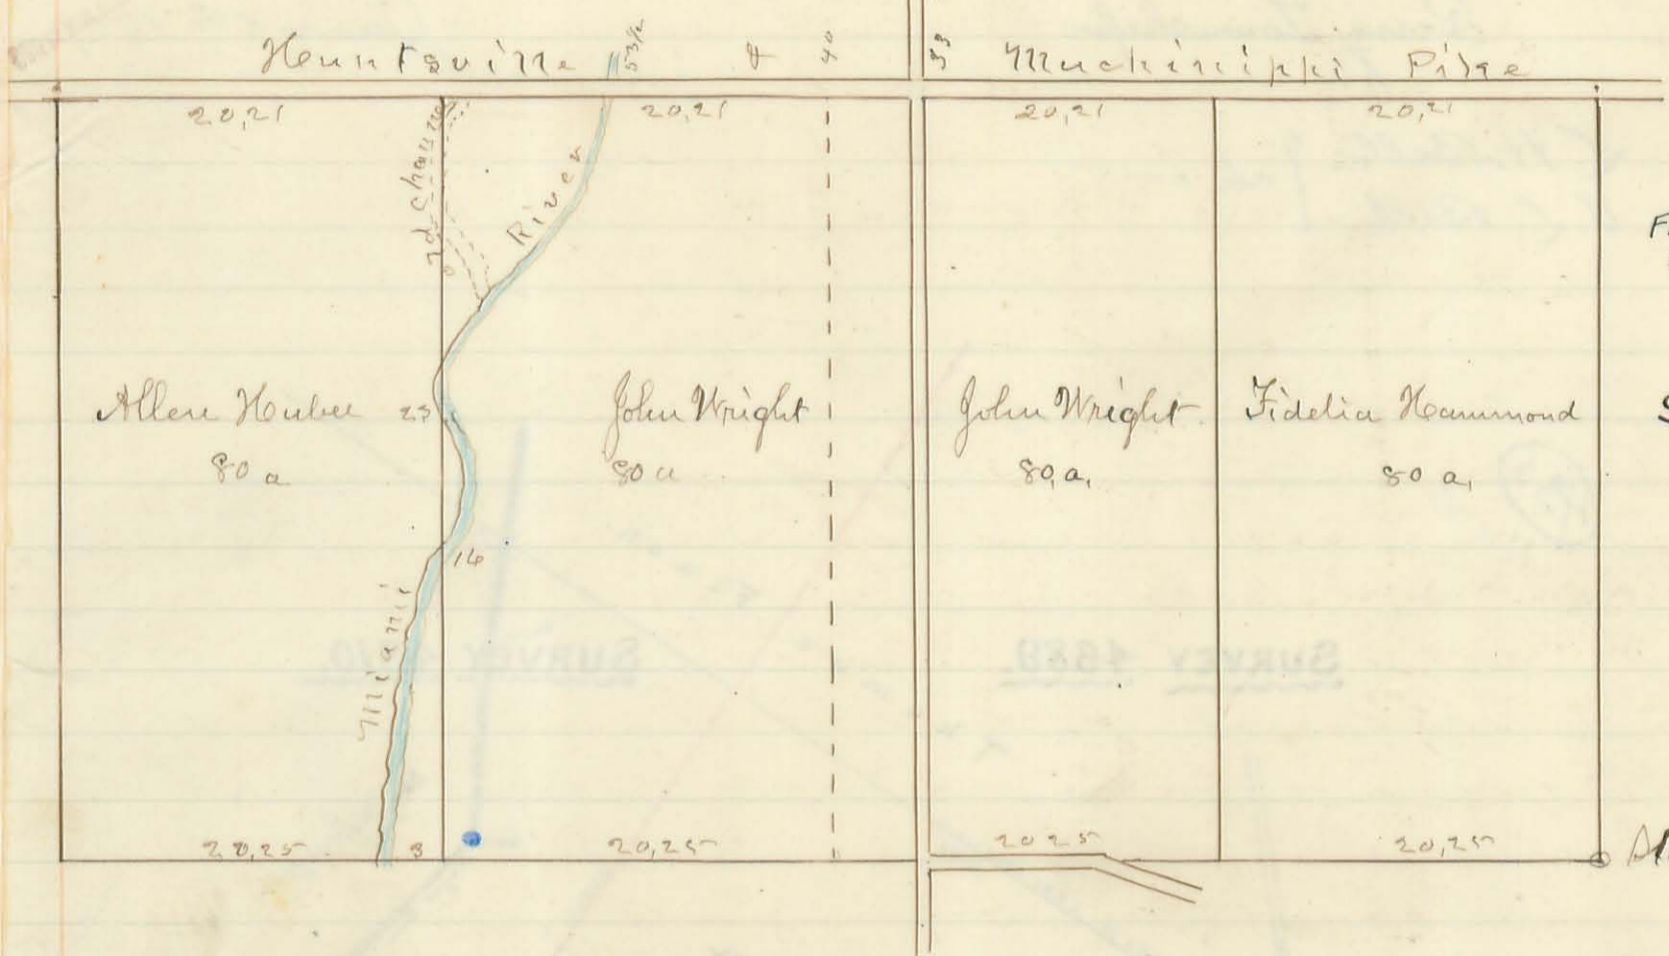 Huntsville & Muchinippi Pike
53 1/2
40
53
20,21
20,21
20,21
20,21
old Channel
River
Allen Huber
80 a
23
John Wright
80 a
John Wright
80, a,
Fidelia Hammond
80 a,
16
Miami
SURVEY
SURVEY 4680.
20,25
3
20,25
20 25
20,25